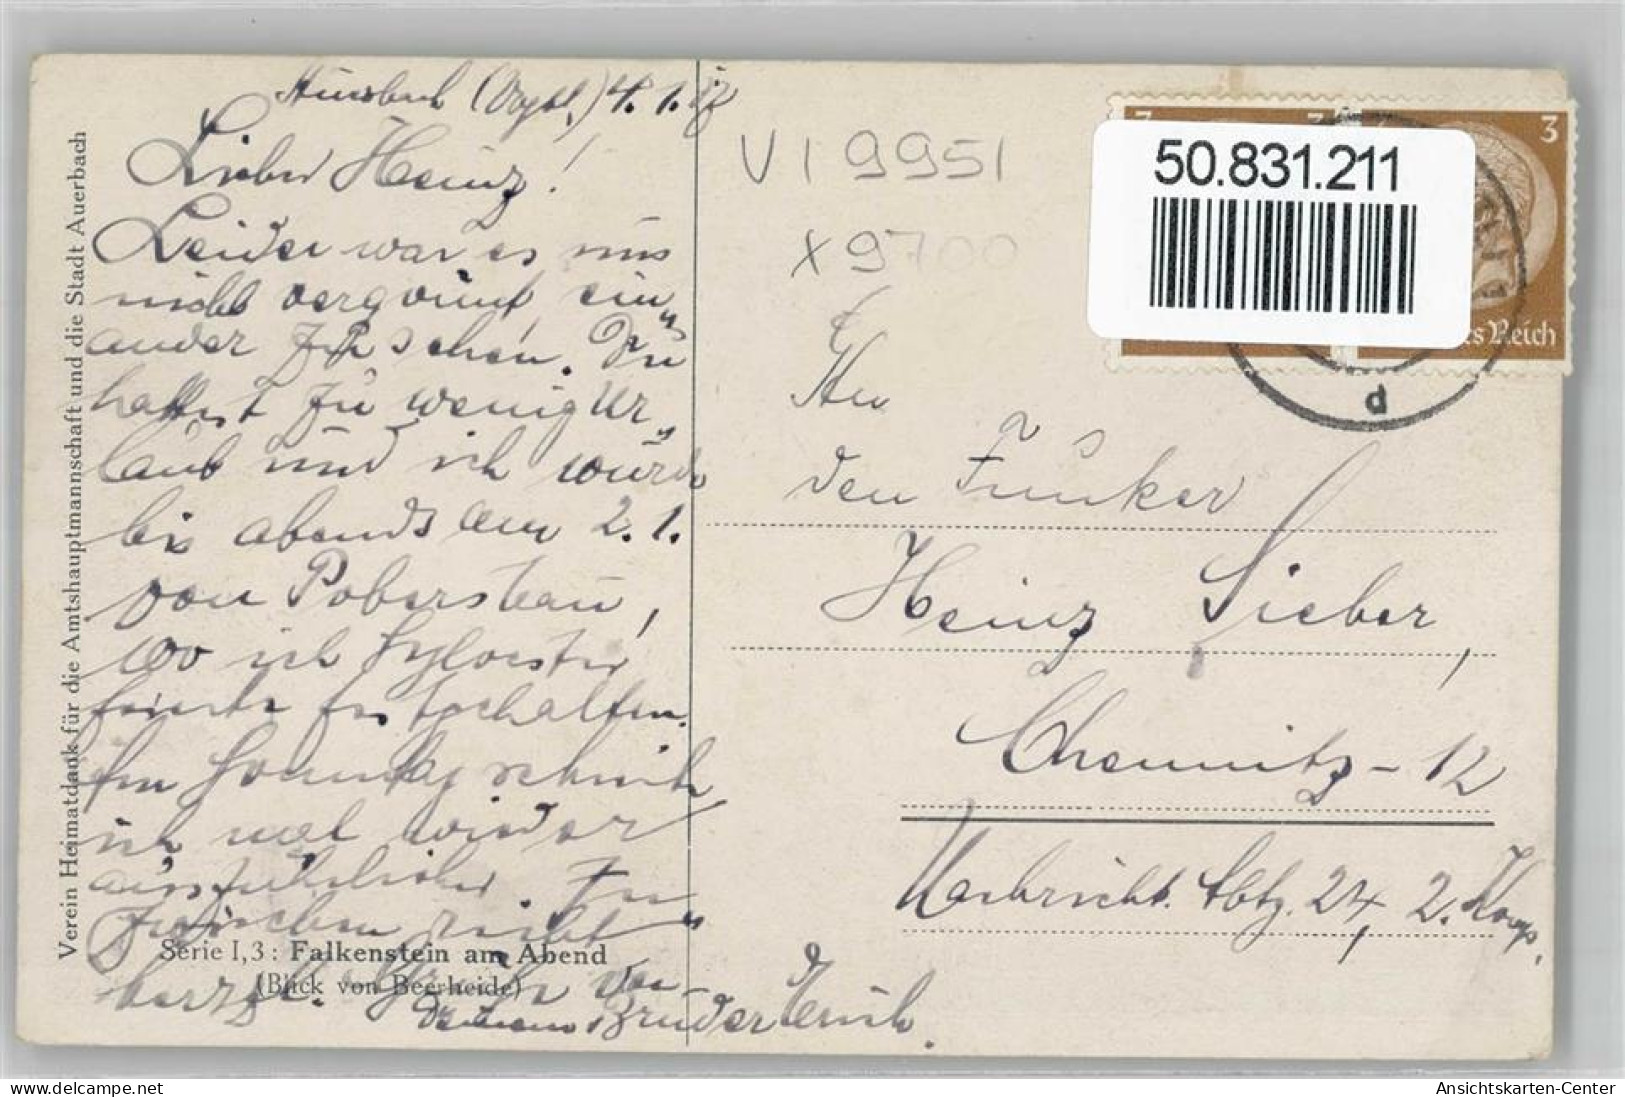 (Vogtl.) 4. 1.
Lieber Heinz!
Leider war es uns
nicht vergönnt, ein„
ander zu sehen. Du
hattest zu wenig Ur„
laub und ich wurde
bis abends am 2. 1.
von Poberstau,
wo ich Sylvester
feierte festgehalten.
Am Sonntag schreibe
ich mal wieder
ausführlicher. In„
zwischen recht
herzl. Grüße von
Deinem Bruder Erich.
Verein Heimatdank für die Amtshauptmannschaft und die Stadt Auerbach
Serie I,3: Falkenstein am Abend
(Blick von Beerheide)
V I 9951
x 9700
50.831.211
3
es Reich
d
An
den Funker
Heinz Sieber,
Chemnitz-12
Nachricht. Abtg. 24, 2. Komp.
delcampe.net
Ansichtskarten-Center